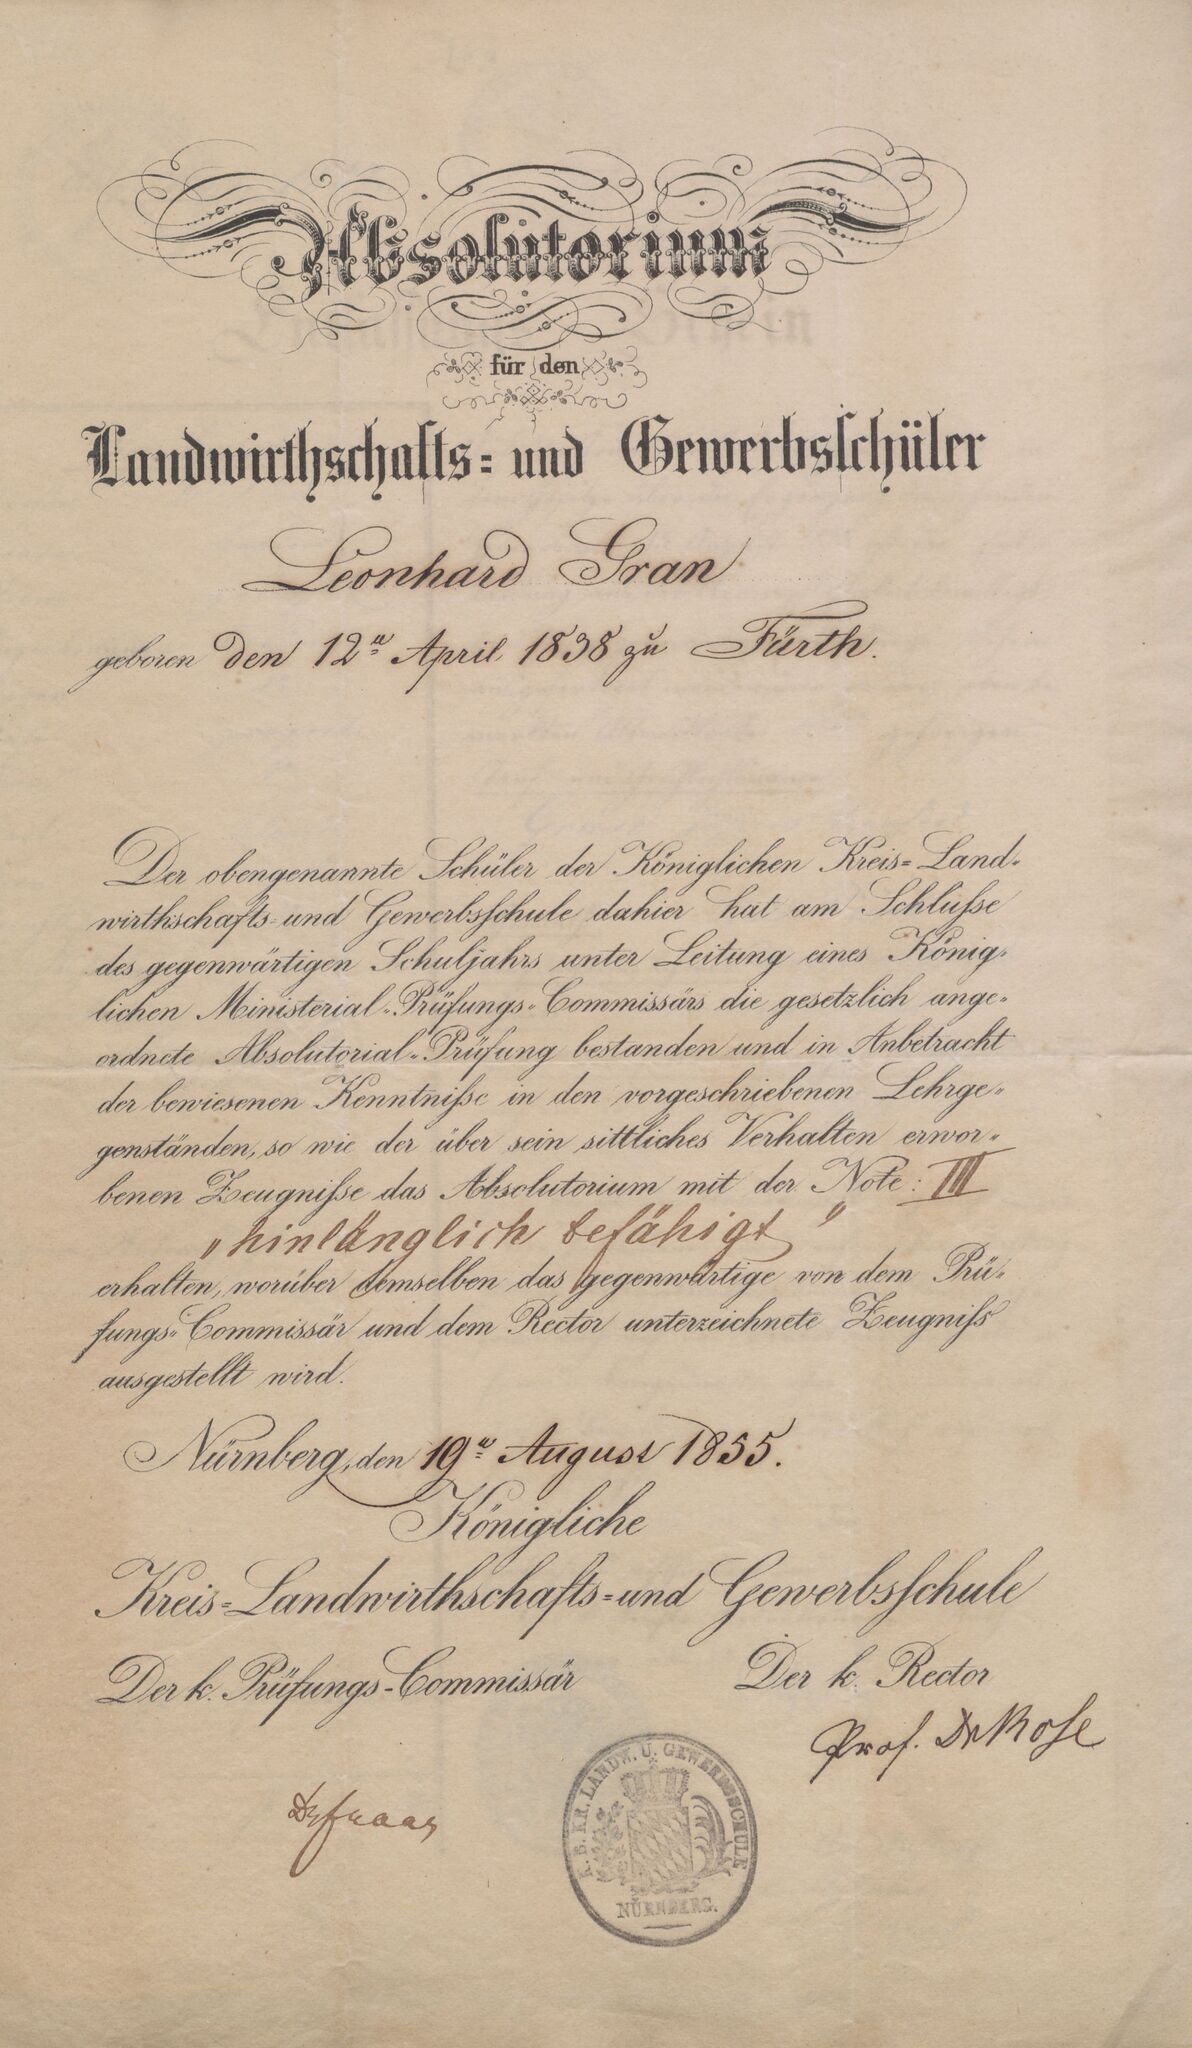 Absolutorium
für den
Landwirthschafts= und Gewerbsschüler
Leonhard Gran
geboren den 12n April 1838 zu Fürth.
Der obengenannte Schüler der Königlichen Kreis=Land-
wirthschafts- und Gewerbsschule dahier hat am Schlusse
des gegenwärtigen Schuljahrs unter Leitung eines König-
lichen Ministerial-Prüfungs-Commissärs die gesetzlich ange-
ordnete Absolutorial-Prüfung bestanden und in Anbetracht
der bewiesenen Kenntnisse in den vorgeschriebenen Lehrge-
genständen, so wie der über sein sittliches Verhalten erwor-
benen Zeugnisse das Absolutorium mit der Note: III
„hinlänglich befähigt"
erhalten, worüber demselben das gegenwärtige von dem Prü-
fungs-Commissär und dem Rector unterzeichnete Zeugniss
ausgestellt wird.
Nürnberg, den 19n August 1855.
Königliche
Kreis=Landwirthschafts=und Gewerbsschule
Der k. Prüfungs-Commissär
Der k. Rector
Prof. Dr Rose
K. B. KR. LANDW. U. GEWERBSSCHULE
NÜRNBERG.